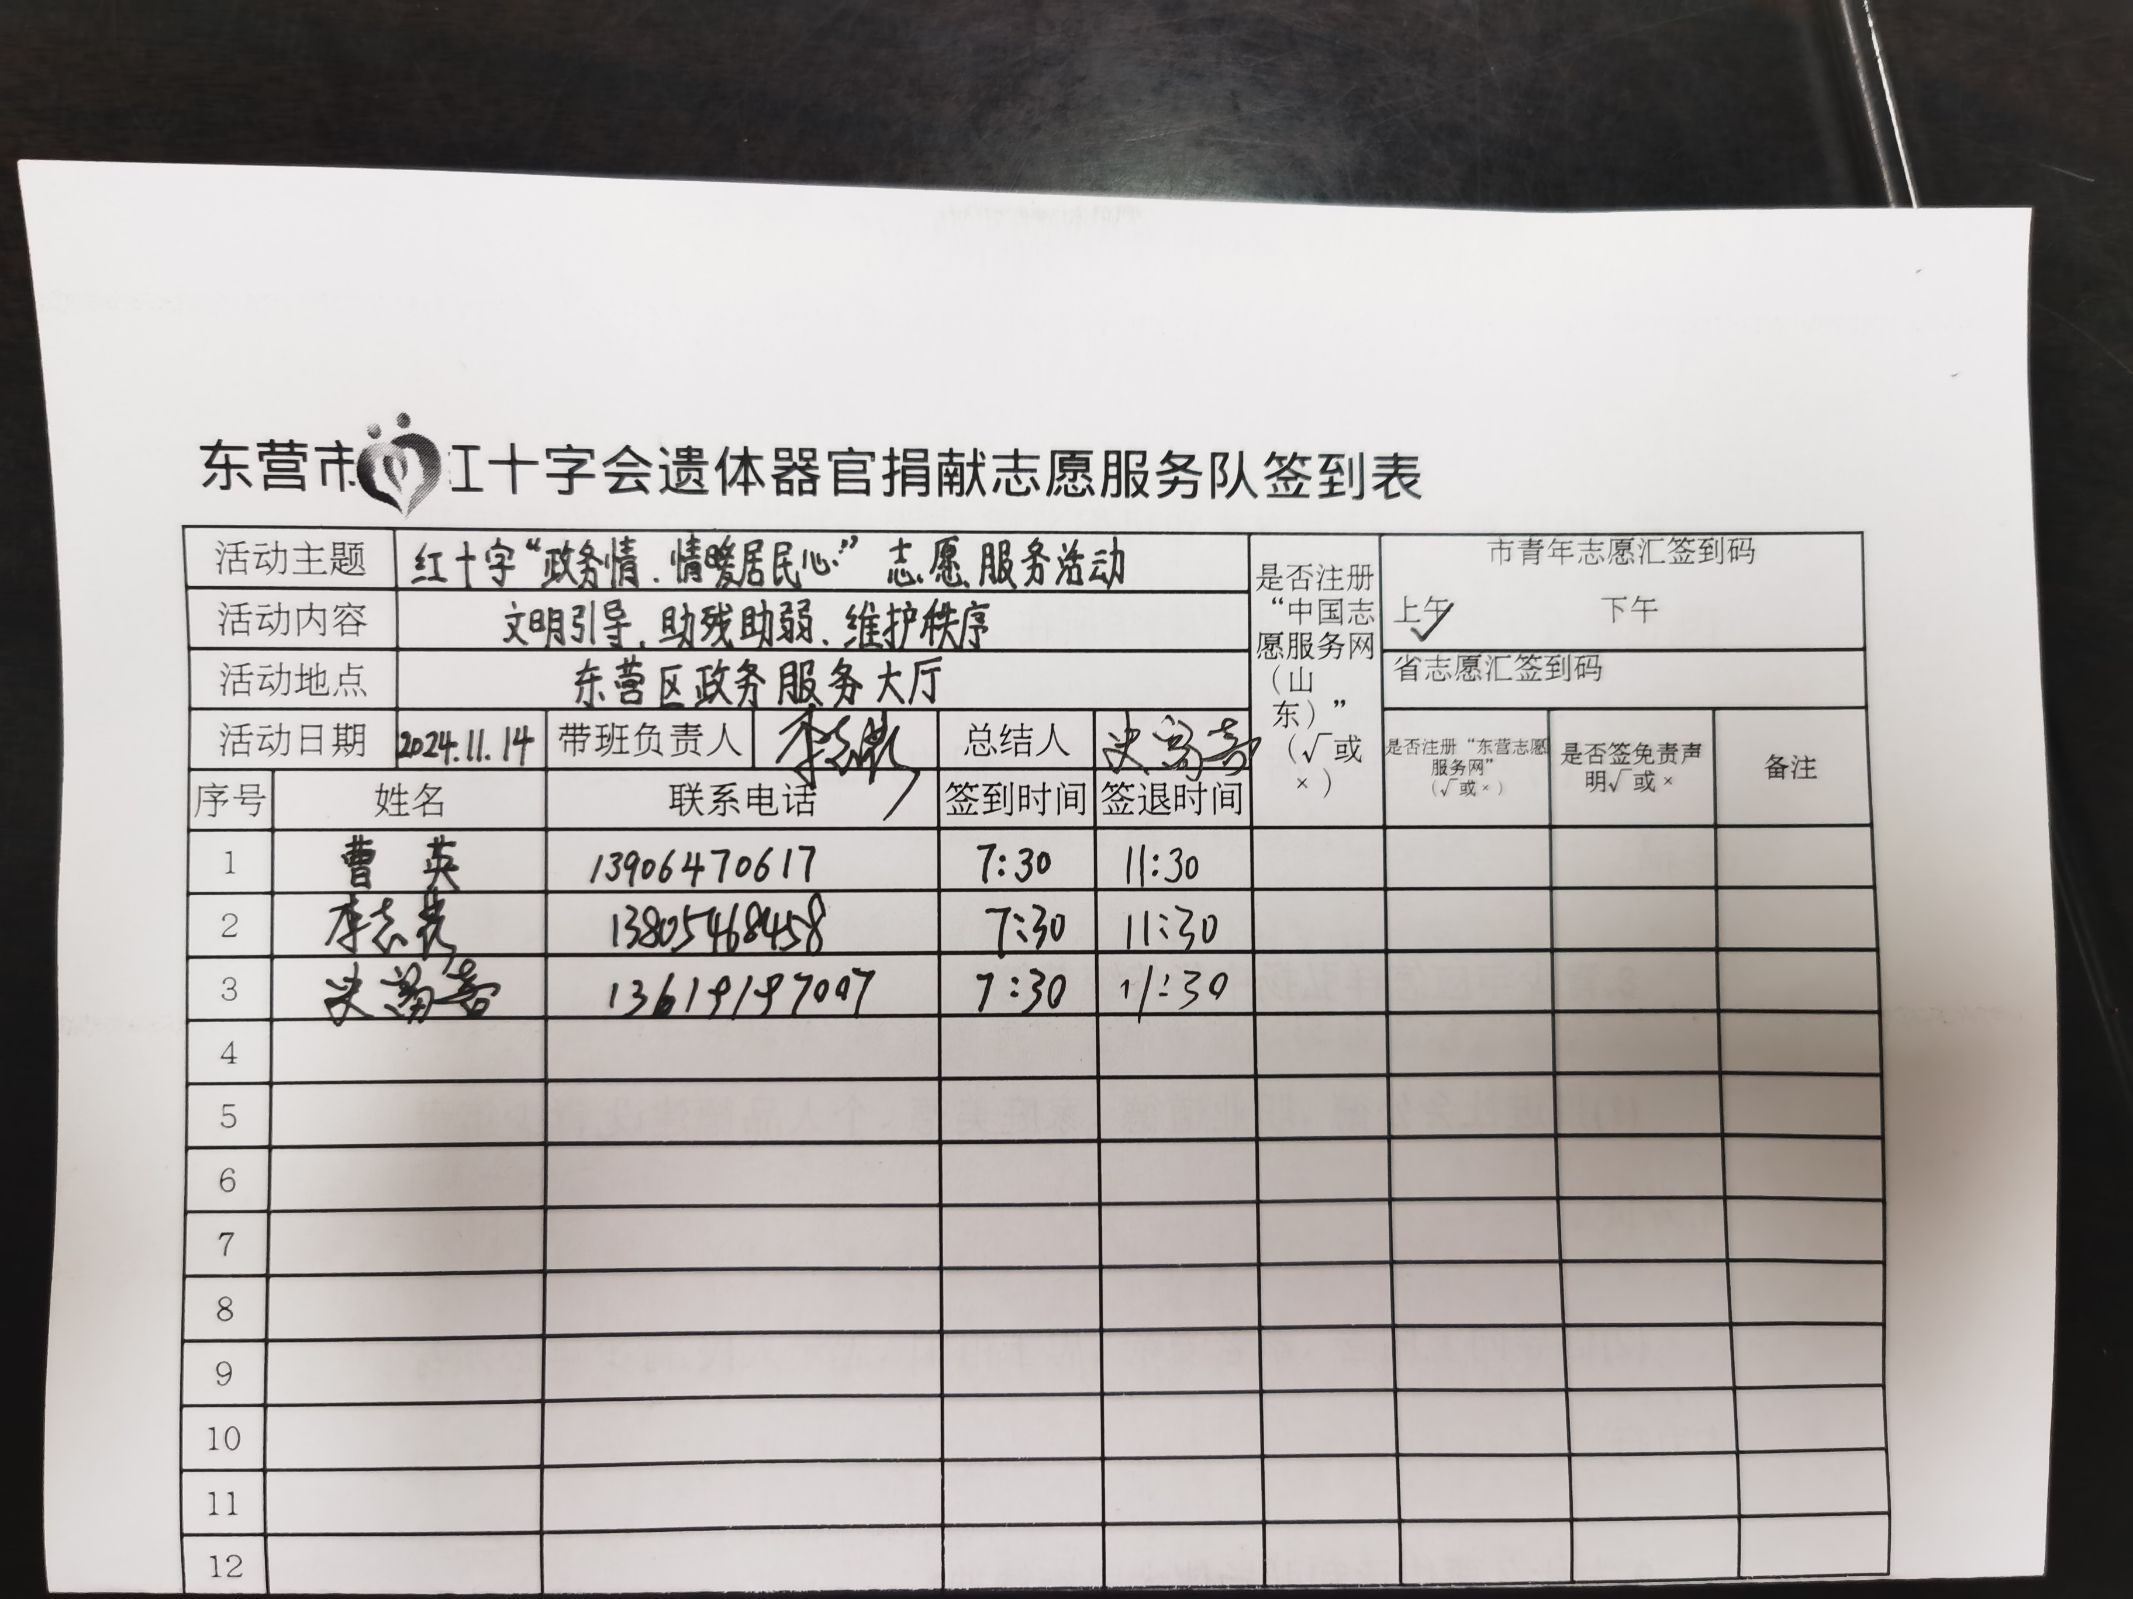 东营市红十字会遗体器官捐献志愿服务队签到表
活动主题 红十字“政务情、情暖居民心”志愿服务活动
活动内容 文明引导、助残助弱、维护秩序
活动地点 东营区政务服务大厅
活动日期 2024.11.14 带班负责人 总结人
是否注册“中国志愿服务网（山东）”（√或×）
市青年志愿汇签到码
上午 ✓ 下午
省志愿汇签到码
是否注册“东营志愿服务网”（√或×） 是否签免责声明√或× 备注
序号 姓名 联系电话 签到时间 签退时间
1 曹英 13906470617 7:30 11:30
2 13805468458 7:30 11:30
3 7:30 11:30
4
5
6
7
8
9
10
11
12